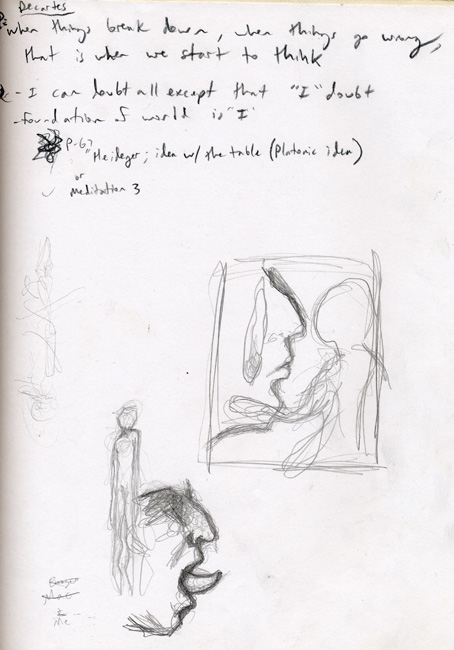 Decartes
when things break down, when things go wrong,
that is when we start to think
- I can doubt all except that "I" doubt
- foundation of world is "I"
P-67
"Heideger; idea w/ the table (Platonic idea)
or
meditation 3
Me